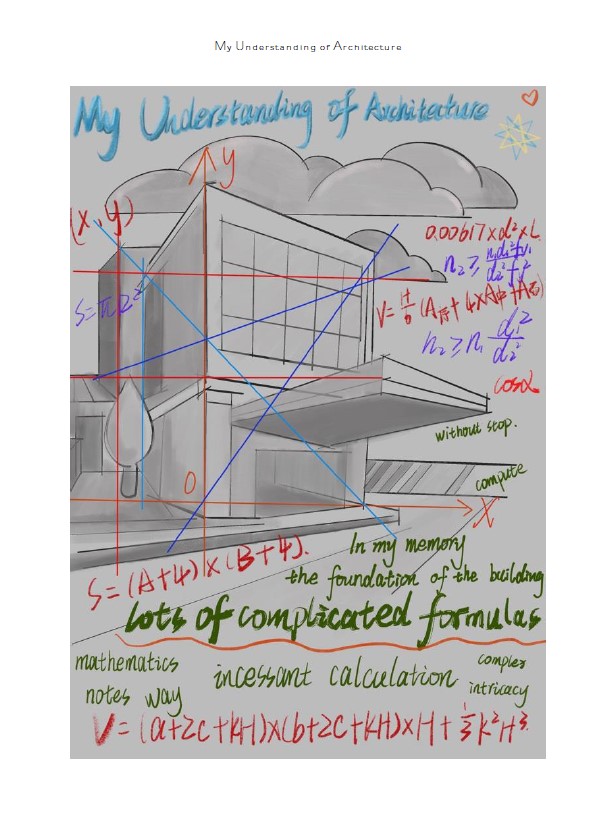 My Understanding of Architecture
My Understanding of Architecture
y
(x, y)
0.00617×d²×L
S=πR²
V=H/6 (A下+4×A中+A石)
n₂≥n₁ d₁²/d₂²
cosα
without stop.
compute
0
X
In my memory
S=(A+4)×(B+4).
the foundation of the building
lots of complicated formulas
mathematics
incessant calculation
complex
notes way
intricacy
V=(a+2C+kH)×(b+2C+kH)×H+⅓k²H³.